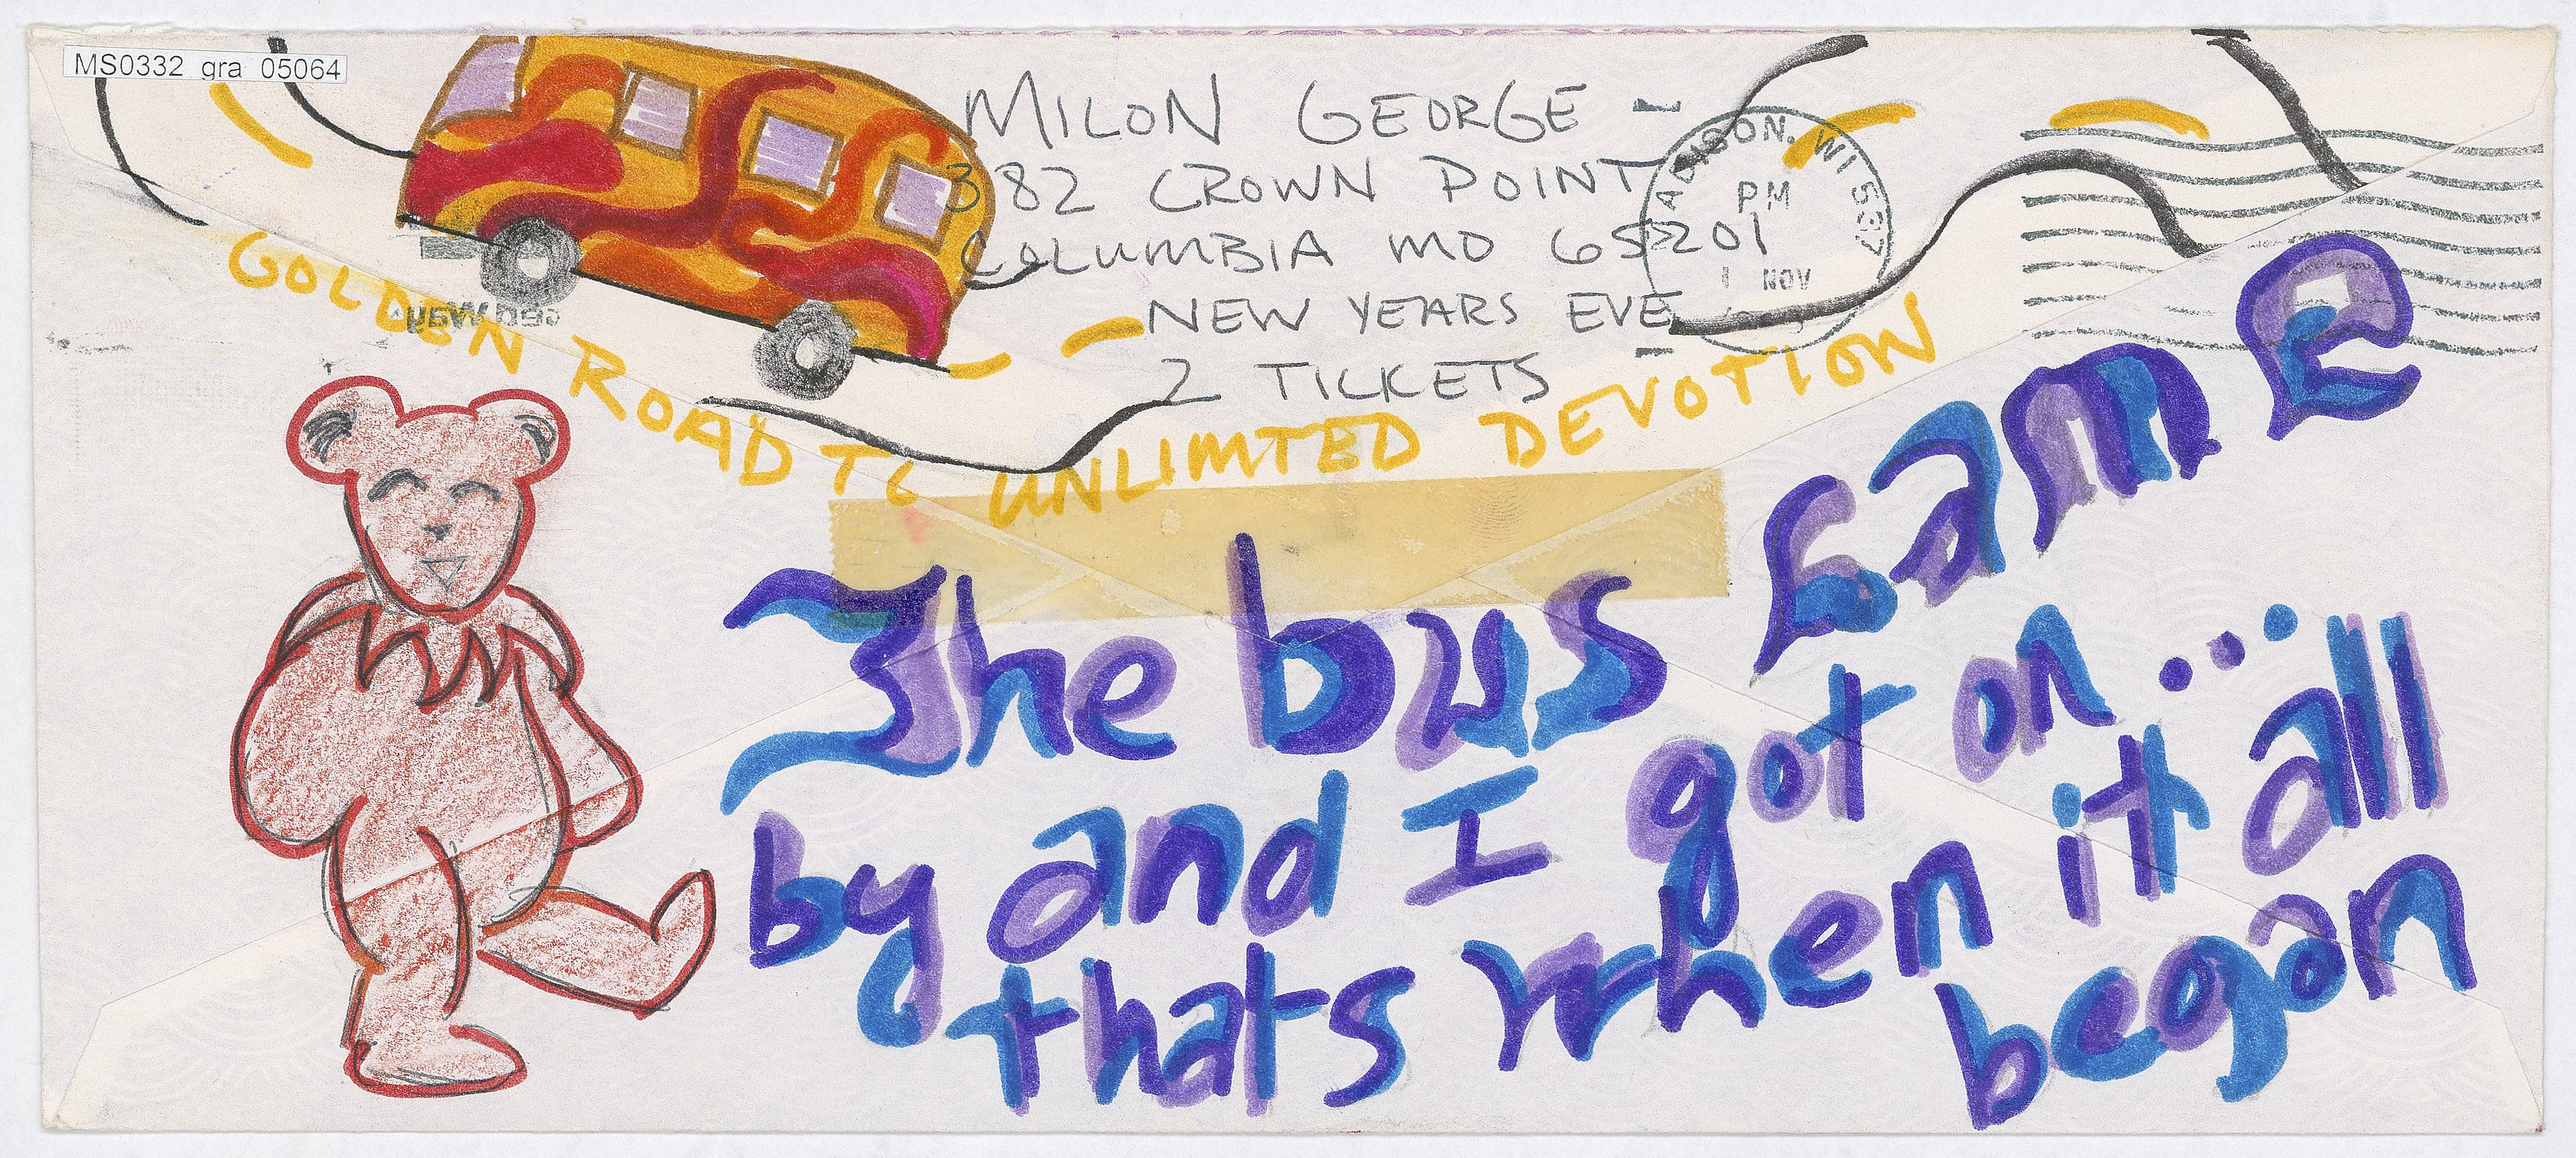 MS0332_gra_05064
MILON GEORGE
382 CROWN POINT
COLUMBIA MO 65201
NEW YEARS EVE
2 TICKETS
MADISON, WI 537
PM
1 NOV
GOLDEN ROAD TO UNLIMTED DEVOTION
The bus came
by and I got on...
thats when it all
began